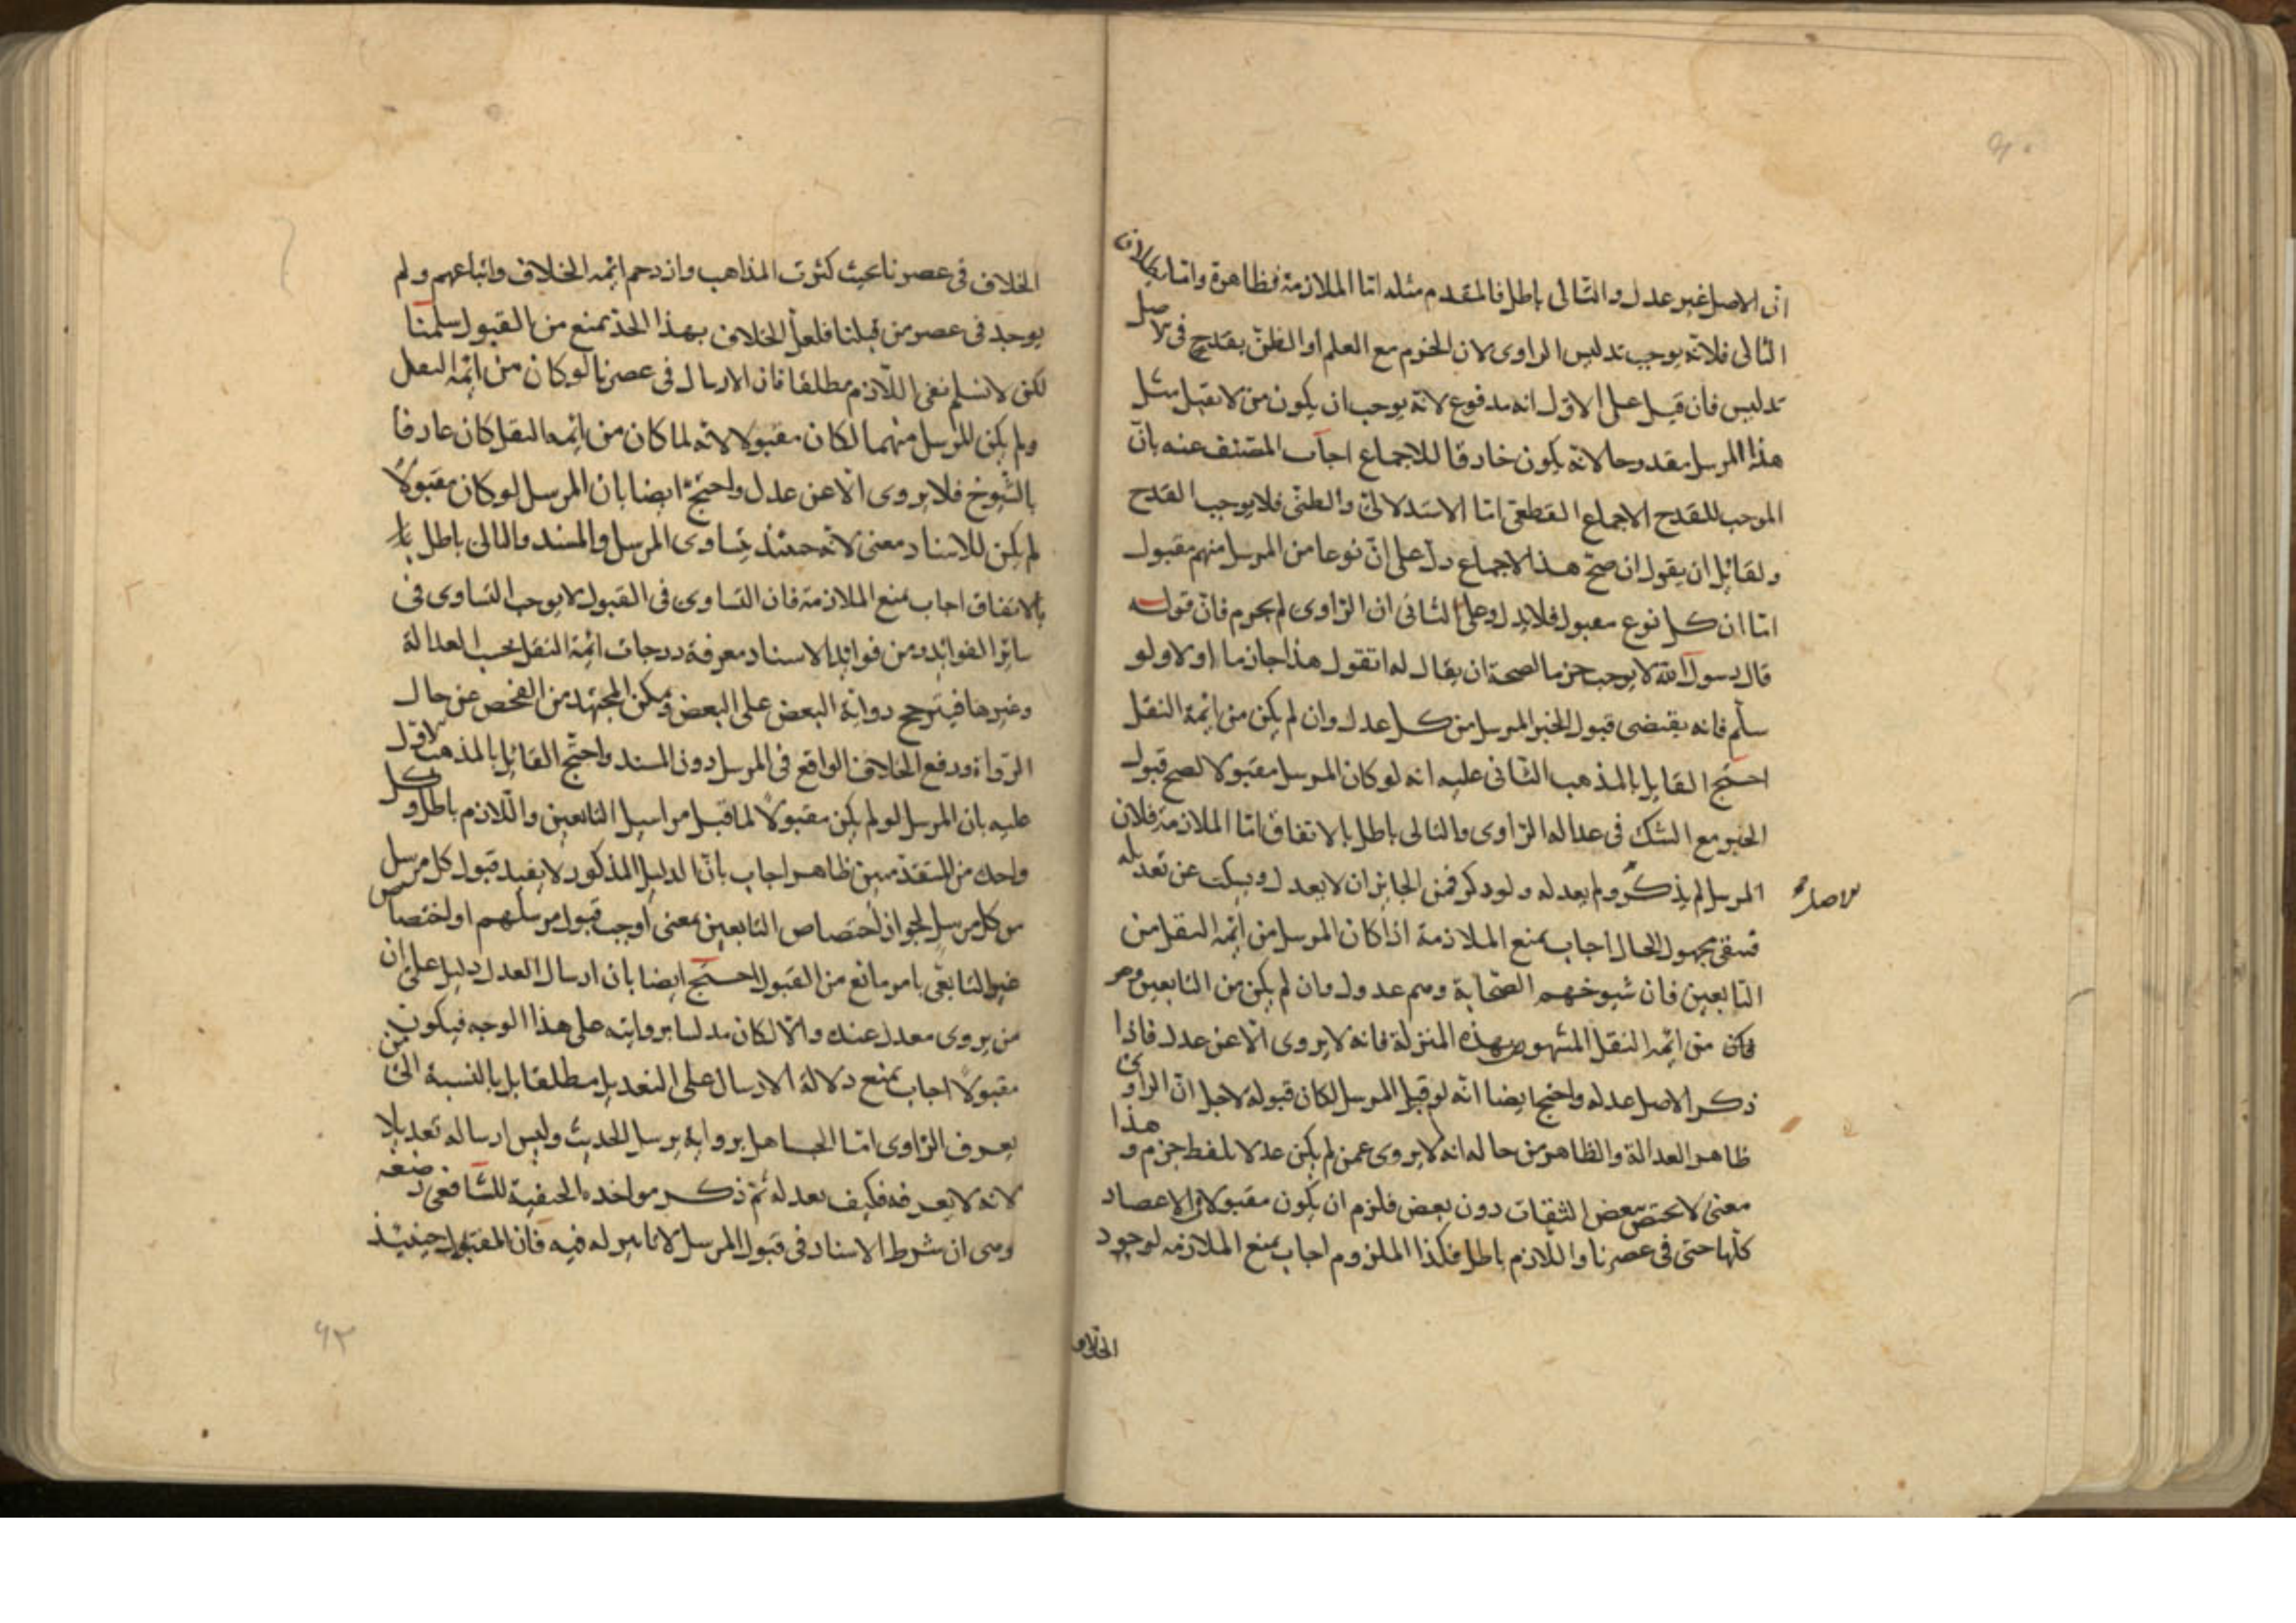 ان الاصل غير عدل والتالى باطل فالمقدم مثله اما الملازمة فظاهرة واما بطلان
التالى فلانه يوجب تدليس الراوى لان الجزم مع العلم او الظن بقدح فى الاصل
تدليس فان قيل على الاول انه مدفوع لانه يوجب ان يكون من لا يقبل مثل
هذا المرسل مقدوحا لانه يكون خارقا للاجماع اجاب المصنف عنه بان
الموجب للقدح الاجماع القطعى اما الاستدلالى والظنى فلا يوجب القدح
ولقائل ان يقول ان صح هذا الاجماع دل على ان نوعا من المرسل منهم مقبول
اما ان كل نوع مقبول فلا يدل وعلى الثانى ان الراوى لم يجزم فان قوله
قال رسول الله لا يوجب جزما لصحة ان يقال له اتقول هذا جازما او لا ولو
سلم فانه يقتضى قبول الخبر المرسل من كل عدل وان لم يكن من ائمة النقل
احتج القايل بالمذهب الثانى عليه انه لو كان المرسل مقبولا لصح قبول
الخبر مع الشك فى عدالة الراوى والتالى باطل بالاتفاق اما الملازمة فلان
المرسل لم يذكر ولم يعدله ولو ذكر فمن الجائز ان لا يعدل ويسكت عن تعديله
الاصل
فيبقى مجهول الحال اجاب بمنع الملازمة اذا كان المرسل من ائمة النقل من
التابعين فان شيوخهم الصحابة وهم عدول وان لم يكن من التابعين وهو
من ائمة النقل المشهور بهذه المنزلة فانه لا يروى الا عن عدل فاذا
ذكر الاصل عدله واحتج ايضا انه لو قبل المرسل لكان قبوله لاجل ان الراوى
ظاهر العدالة والظاهر من حاله انه لا يروى عمن لم يكن عدلا بلفظ جزم وهذا
معنى لا يختص ببعض الثقات دون بعض فلزم ان يكون مقبولا فى الاعصار
كلها حتى فى عصرنا واللازم باطل فكذا الملزوم اجاب بمنع الملازمة لوجود
الخلاف
الخلاف فى عصرنا بحيث كثرت المذاهب وازدحم ائمة الخلاف واتباعهم ولم
يوجد فى عصر من قبلنا فلعل الخلاف بهذا الحد يمنع من القبول سلمنا
لكن لا نسلم نفى اللازم مطلقا فان الارسال فى عصرنا لو كان من ائمة النقل
ولم يكن للمرسل منهما لكان مقبولا لانه لما كان من ائمة النقل كان عارفا
بالشيوخ فلا يروى الا عن عدل واحتج ايضا بان المرسل لو كان مقبولا
لم يكن للاسناد معنى لانه حينئذ يتساوى المرسل والمسند والتالى باطل
بالاتفاق اجاب بمنع الملازمة فان التساوى فى القبول لا يوجب التساوى فى
سائر الفوائد ومن فوائد الاسناد معرفة درجات ائمة النقل بحسب العدالة
وغيرها فيترجح رواية البعض على البعض ويمكن المجتهد من الفحص عن حال
الرواة ودفع الخلاف الواقع فى المرسل دون المسند واحتج القائل بالمذهب الاول
عليه بان المرسل لو لم يكن مقبولا لما قبل مراسيل التابعين واللازم باطل وكل
واحد من المتقدمين ظاهر اجاب بان الدليل المذكور لا يفيد قبول كل مرسل
من كل مرسل لجواز اختصاص التابعين بمعنى اوجب قبول مرسلهم او اختصاص
غير التابعى بامر مانع من القبول احتج ايضا بان ارسال العدل دليل على ان
من يروى معدل عنده والا لكان مدلسا بروايته على هذا الوجه فيكون
مقبولا اجاب بمنع دلالة الارسال على التعديل مطلقا بل بالنسبة الى من
يعرف الراوى اما الجاهل برواية يرسل الحديث وليس ارساله تعديلا
لانه لا يعرفه فكيف يعدله ثم ذكر مواخذة الحنفية للشافعى رضى
وهى ان شرط الاسناد فى قبول المرسل لا تاثير له فيه فان المقبول حينئذ
٩٣